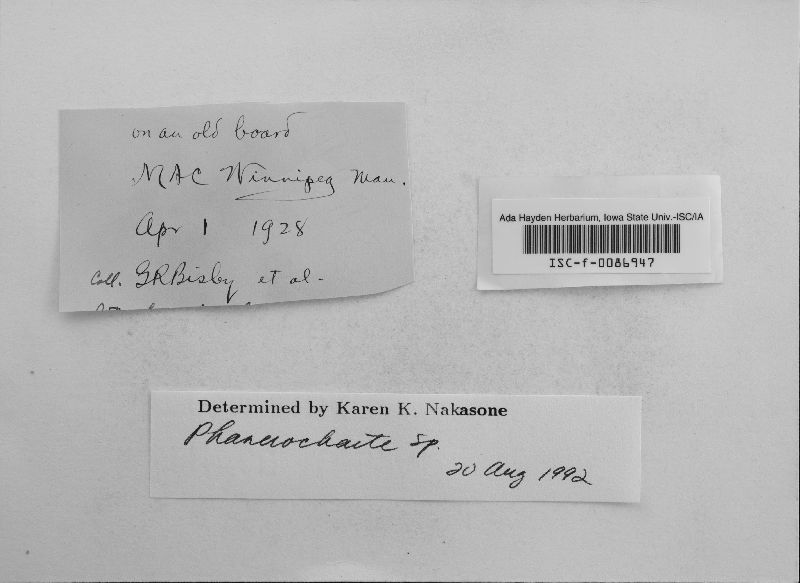 on an old board
MAC Winnipeg Man.
Apr 1 1928
Coll. GRBisby et al-
Ada Hayden Herbarium, Iowa State Univ.-ISC/IA
ISC-f-0086947
Determined by Karen K. Nakasone
Phanerochaete sp.
20 Aug 1992